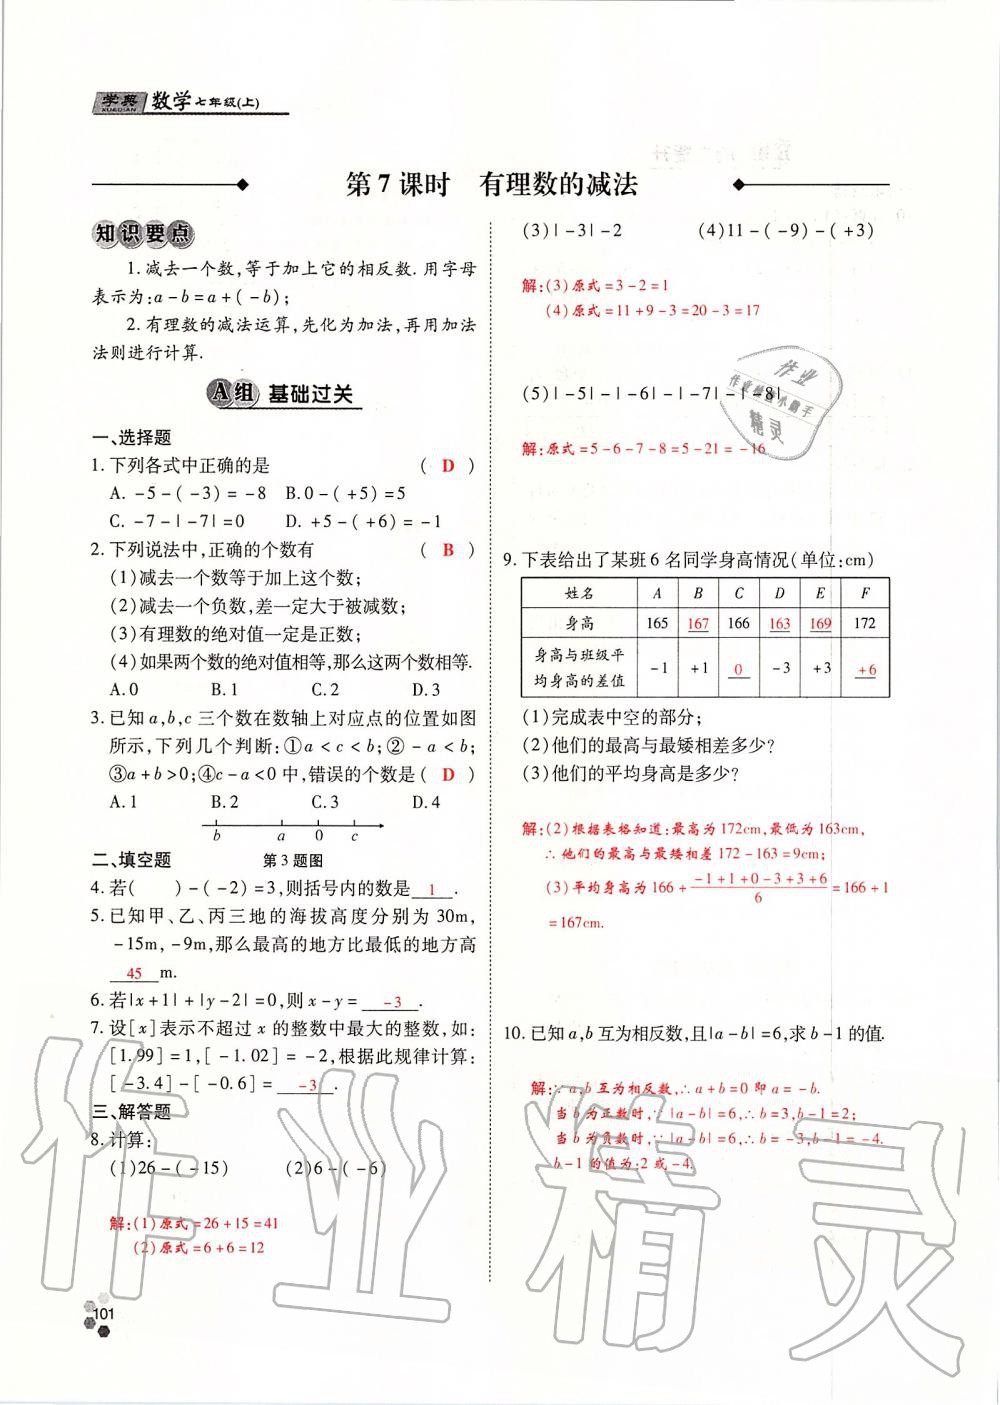 学典 数学 七年级(上)
XUEDIAN
第7课时 有理数的减法
知识要点
1.减去一个数,等于加上它的相反数.用字母
表示为:a-b=a+(-b);
2.有理数的减法运算,先化为加法,再用加法
法则进行计算.
A组 基础过关
一、选择题
1.下列各式中正确的是 ( D )
A. -5-(-3)=-8 B.0-(+5)=5
C. -7-|-7|=0 D. +5-(+6)=-1
2.下列说法中,正确的个数有 ( B )
(1)减去一个数等于加上这个数;
(2)减去一个负数,差一定大于被减数;
(3)有理数的绝对值一定是正数;
(4)如果两个数的绝对值相等,那么这两个数相等.
A.0 B.1 C.2 D.3
3.已知a,b,c三个数在数轴上对应点的位置如图
所示,下列几个判断:①a<c<b;②-a<b;
③a+b>0;④c-a<0中,错误的个数是( D )
A.1 B.2 C.3 D.4
b a 0 c
第3题图
二、填空题
4.若( )-(-2)=3,则括号内的数是 1 .
5.已知甲、乙、丙三地的海拔高度分别为30m,
-15m,-9m,那么最高的地方比最低的地方高
45 m.
6.若|x+1|+|y-2|=0,则x-y= -3 .
7.设[x]表示不超过x的整数中最大的整数,如:
[1.99]=1,[-1.02]=-2,根据此规律计算:
[-3.4]-[-0.6]= -3 .
三、解答题
8.计算:
(1)26-(-15) (2)6-(-6)
解:(1)原式=26+15=41
(2)原式=6+6=12
101
(3)|-3|-2 (4)11-(-9)-(+3)
解:(3)原式=3-2=1
(4)原式=11+9-3=20-3=17
(5)|-5|-|-6|-|-7|-|-8|
解:原式=5-6-7-8=5-21=-16
9.下表给出了某班6名同学身高情况(单位:cm)
姓名 A B C D E F
身高 165 167 166 163 169 172
身高与班级平
均身高的差值 -1 +1 0 -3 +3 +6
(1)完成表中空的部分;
(2)他们的最高与最矮相差多少?
(3)他们的平均身高是多少?
解:(2)根据表格知道:最高为172cm,最低为163cm,
∴他们的最高与最矮相差172-163=9cm;
(3)平均身高为166+(-1+1+0-3+3+6)/6=166+1
=167cm.
10.已知a,b互为相反数,且|a-b|=6,求b-1的值.
解:∵a,b互为相反数,∴a+b=0即a=-b.
当b为正数时,∵|a-b|=6,∴b=3,b-1=2;
当b为负数时,∵|a-b|=6,∴b=-3,b-1=-4.
b-1的值为:2或-4.
作业精灵
作业
精灵